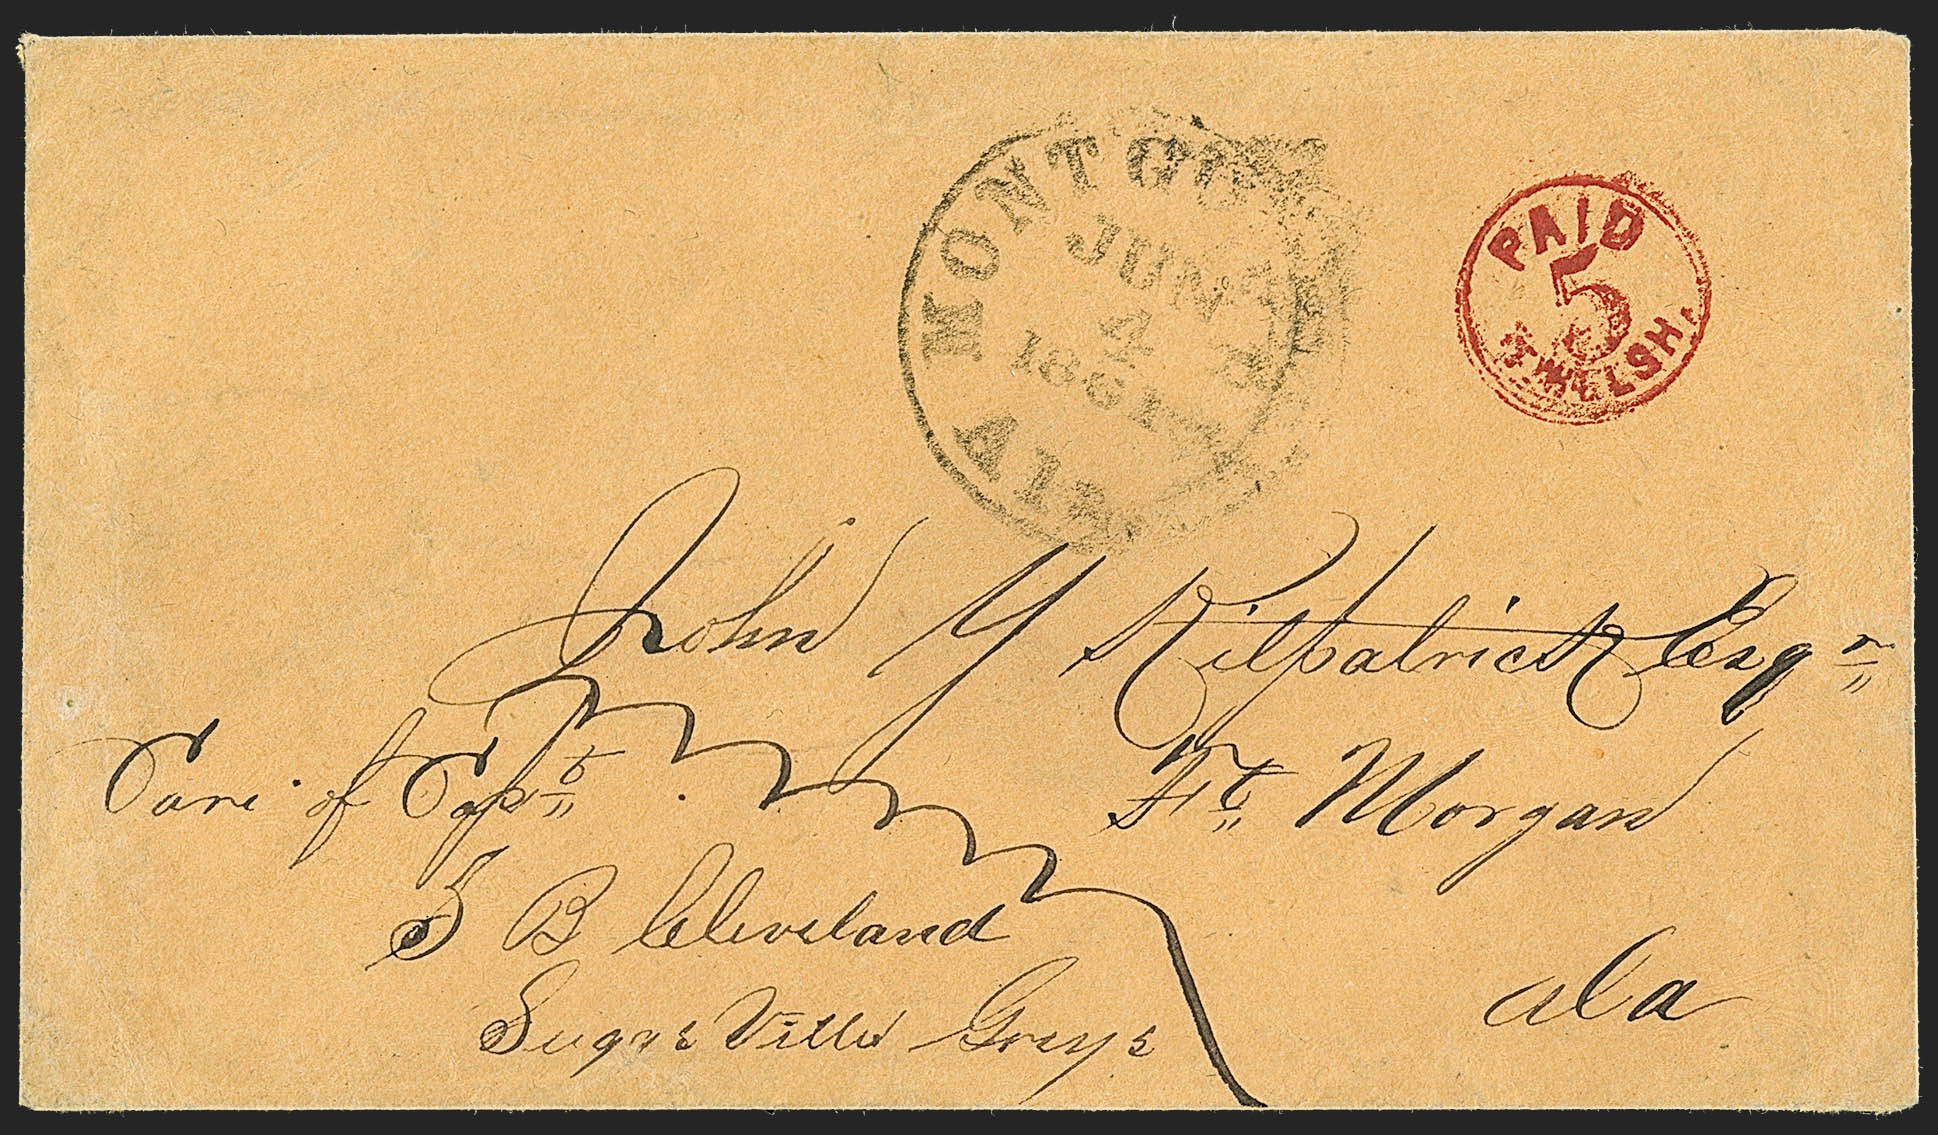 MONTGO
JUN
4
1861
Ala
PAID
5
T. WELSH.
John Y Kilpatrick Esqr
Care of Capt
Ft Morgan
S B Cleveland
Suggs Ville Greys
Ala